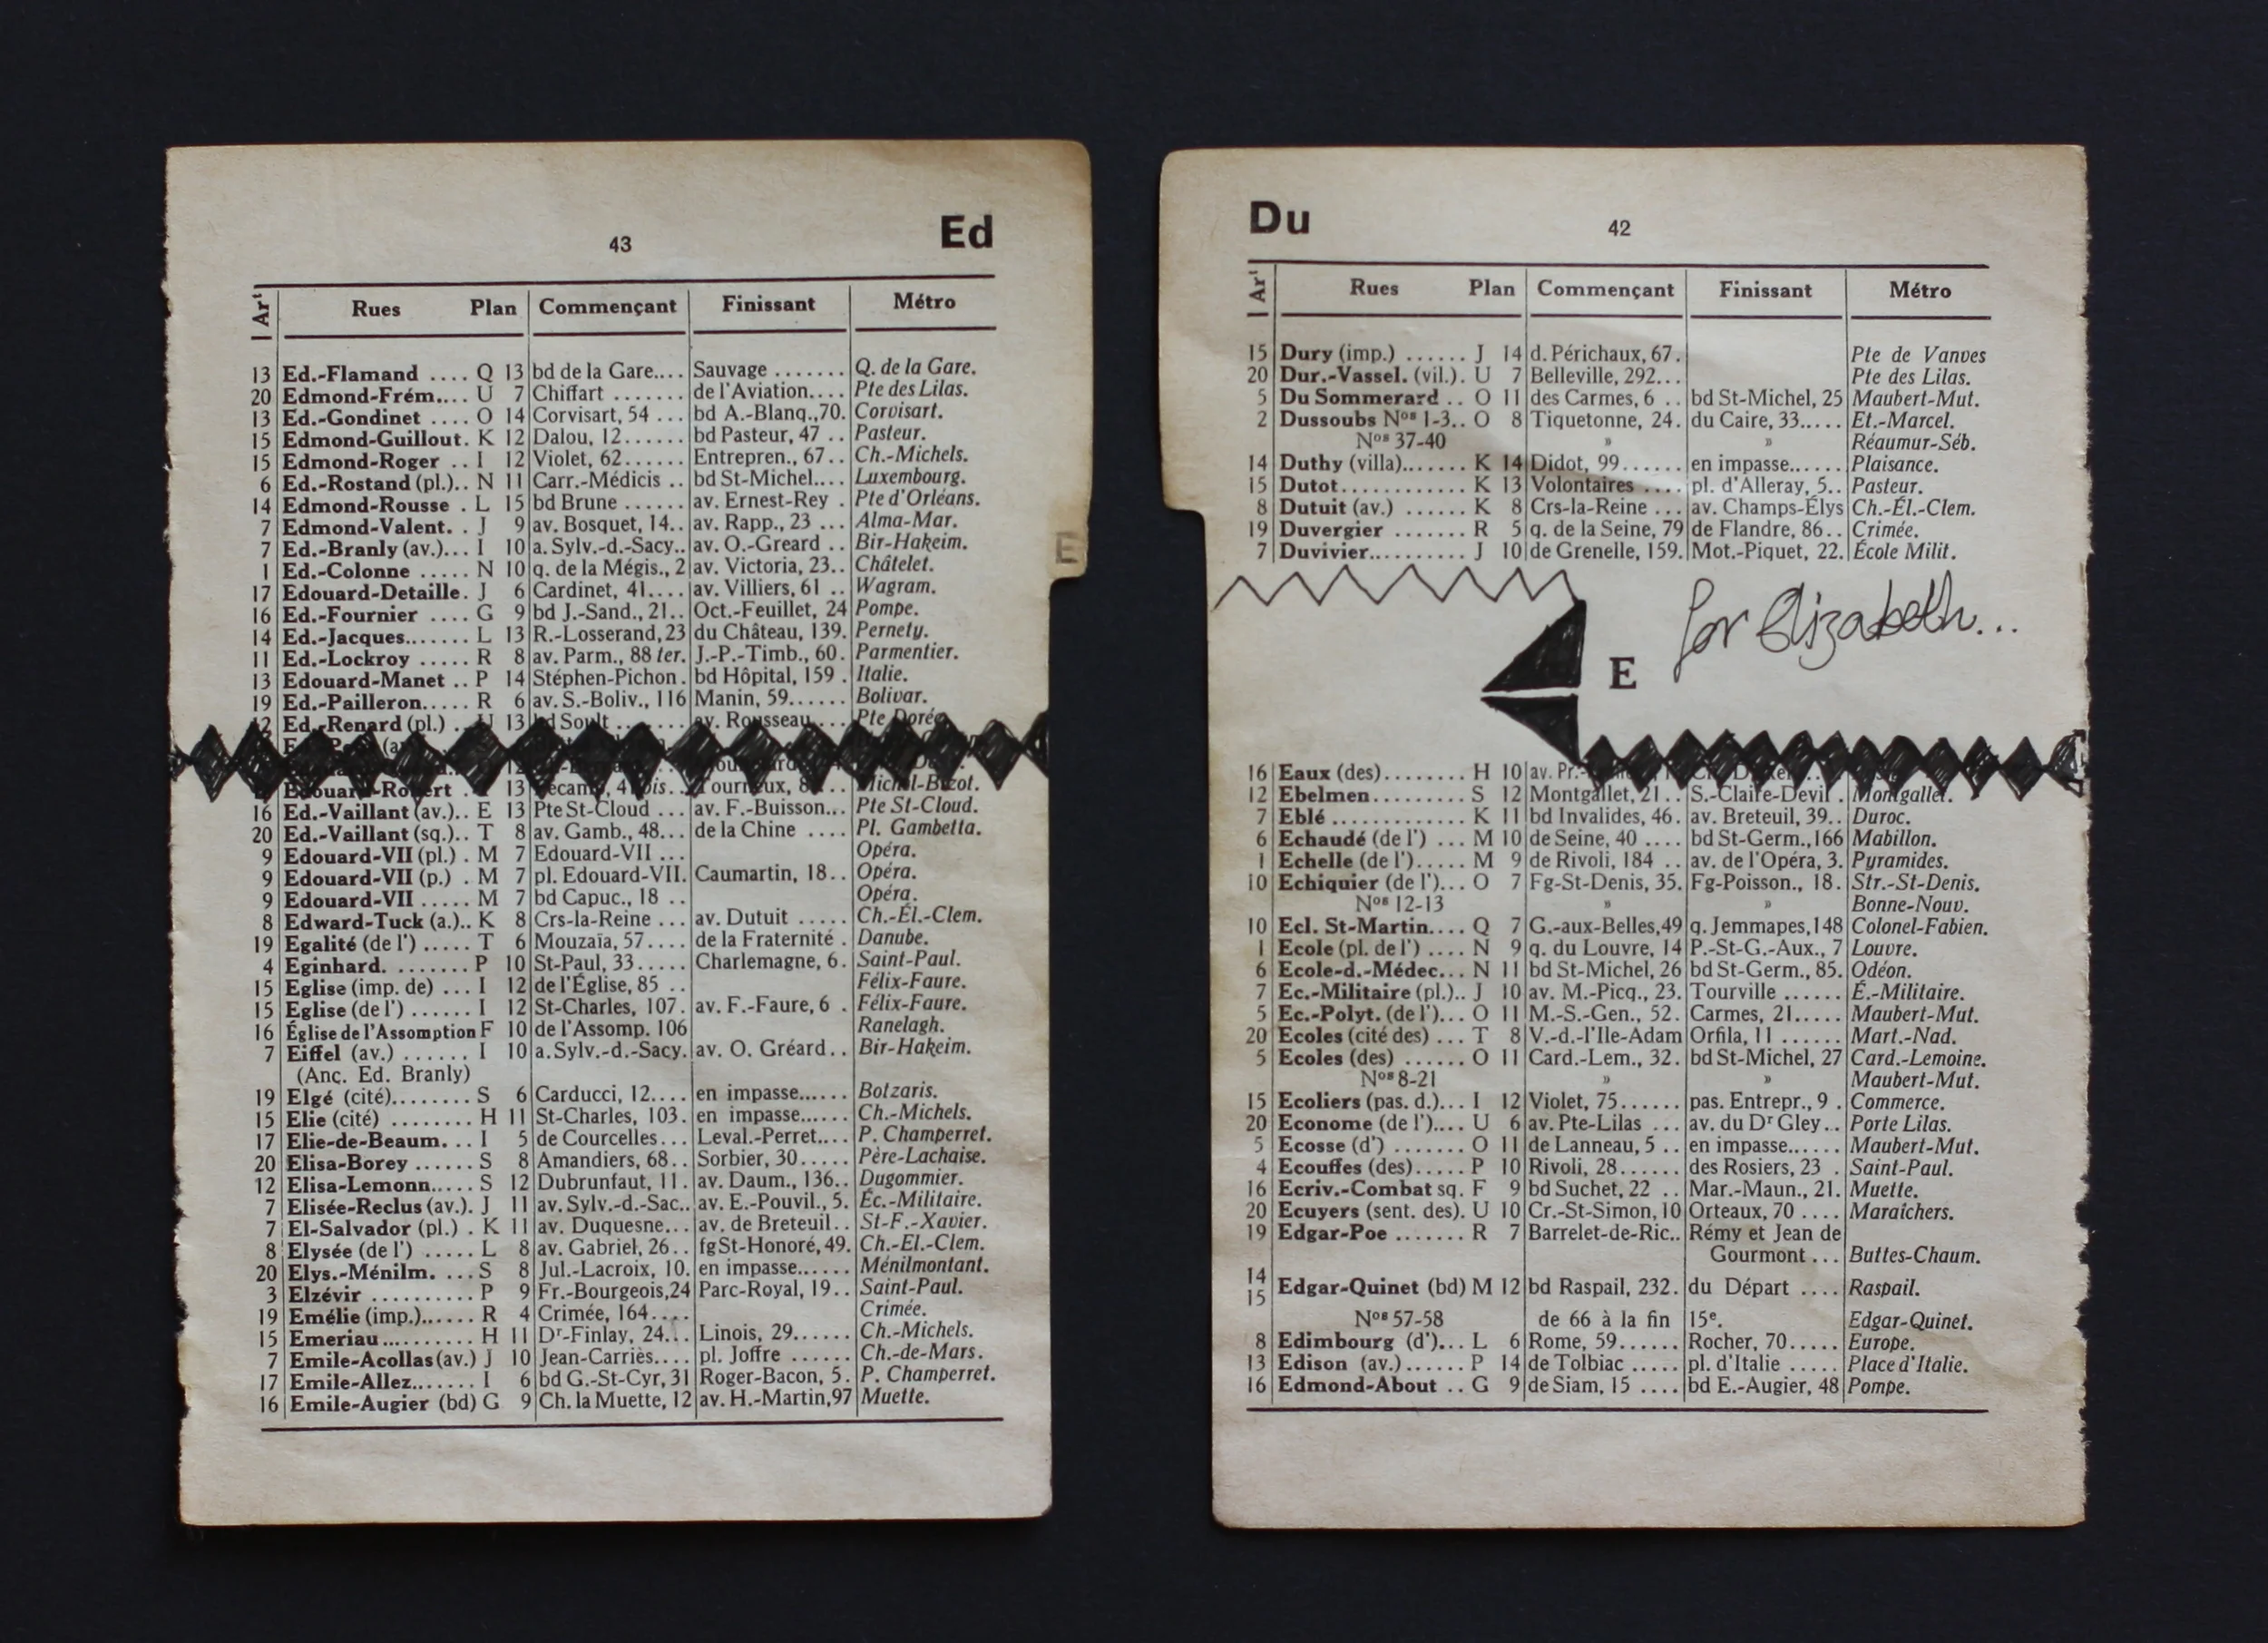 43
Ed
Arᵗ Rues Plan Commençant Finissant Métro
13 Ed.-Flamand .... Q 13 bd de la Gare.... Sauvage ....... Q. de la Gare.
20 Edmond-Frém.... U 7 Chiffart ....... de l'Aviation.... Pte des Lilas.
13 Ed.-Gondinet .... O 14 Corvisart, 54 ... bd A.-Blanq.,70. Corvisart.
15 Edmond-Guillout. K 12 Dalou, 12...... bd Pasteur, 47 .. Pasteur.
15 Edmond-Roger .. I 12 Violet, 62...... Entrepren., 67.. Ch.-Michels.
6 Ed.-Rostand (pl.).. N 11 Carr.-Médicis .. bd St-Michel.... Luxembourg.
14 Edmond-Rousse . L 15 bd Brune ...... av. Ernest-Rey . Pte d'Orléans.
7 Edmond-Valent. . J 9 av. Bosquet, 14.. av. Rapp., 23 ... Alma-Mar.
7 Ed.-Branly (av.)... I 10 a. Sylv.-d.-Sacy.. av. O.-Greard .. Bir-Hakeim.
1 Ed.-Colonne ..... N 10 q. de la Mégis., 2 av. Victoria, 23.. Châtelet.
17 Edouard-Detaille. J 6 Cardinet, 41.... av. Villiers, 61 .. Wagram.
16 Ed.-Fournier .... G 9 bd J.-Sand., 21.. Oct.-Feuillet, 24 Pompe.
14 Ed.-Jacques....... L 13 R.-Losserand,23 du Château, 139. Pernety.
11 Ed.-Lockroy ..... R 8 av. Parm., 88 ter. J.-P.-Timb., 60. Parmentier.
13 Edouard-Manet .. P 14 Stéphen-Pichon. bd Hôpital, 159 . Italie.
19 Ed.-Pailleron..... R 6 av. S.-Boliv., 116 Manin, 59...... Bolivar.
12 Ed.-Renard (pl.) .. U 13 bd Soult ....... av. Rousseau.... Pte Dorée.
Edouard-Robert 13 Tourneux, 8 Michel-Bizot.
16 Ed.-Vaillant (av.).. E 13 Pte St-Cloud ... av. F.-Buisson... Pte St-Cloud.
20 Ed.-Vaillant (sq.).. T 8 av. Gamb., 48... de la Chine .... Pl. Gambetta.
9 Edouard-VII (pl.) . M 7 Edouard-VII ... Opéra.
9 Edouard-VII (p.) . M 7 pl. Edouard-VII. Caumartin, 18.. Opéra.
9 Edouard-VII ..... M 7 bd Capuc., 18 .. Opéra.
8 Edward-Tuck (a.).. K 8 Crs-la-Reine ... av. Dutuit ..... Ch.-Él.-Clem.
19 Egalité (de l') ..... T 6 Mouzaïa, 57.... de la Fraternité . Danube.
4 Eginhard. ........ P 10 St-Paul, 33..... Charlemagne, 6. Saint-Paul.
15 Eglise (imp. de) ... I 12 de l'Église, 85 .. Félix-Faure.
15 Eglise (de l') ...... I 12 St-Charles, 107. av. F.-Faure, 6 . Félix-Faure.
16 Église de l'Assomption F 10 de l'Assomp. 106 Ranelagh.
7 Eiffel (av.) ...... I 10 a. Sylv.-d.-Sacy. av. O. Gréard.. Bir-Hakeim.
(Anc. Ed. Branly)
19 Elgé (cité)........ S 6 Carducci, 12.... en impasse...... Botzaris.
15 Elie (cité) ........ H 11 St-Charles, 103. en impasse...... Ch.-Michels.
17 Elie-de-Beaum. .. I 5 de Courcelles... Leval.-Perret.... P. Champerret.
20 Elisa-Borey ...... S 8 Amandiers, 68.. Sorbier, 30..... Père-Lachaise.
12 Elisa-Lemonn..... S 12 Dubrunfaut, 11. av. Daum., 136.. Dugommier.
7 Elisée-Reclus (av.). J 11 av. Sylv.-d.-Sac.. av. E.-Pouvil., 5. Éc.-Militaire.
7 El-Salvador (pl.) . K 11 av. Duquesne... av. de Breteuil.. St-F.-Xavier.
8 Elysée (de l') ..... L 8 av. Gabriel, 26.. fg St-Honoré, 49. Ch.-El.-Clem.
20 Elys.-Ménilm. ... S 8 Jul.-Lacroix, 10. en impasse...... Ménilmontant.
3 Elzévir .......... P 9 Fr.-Bourgeois,24 Parc-Royal, 19.. Saint-Paul.
19 Emélie (imp.)...... R 4 Crimée, 164.... Crimée.
15 Emeriau.......... H 11 Dʳ-Finlay, 24... Linois, 29...... Ch.-Michels.
7 Emile-Acollas (av.) J 10 Jean-Carriès.... pl. Joffre ...... Ch.-de-Mars.
17 Emile-Allez....... I 6 bd G.-St-Cyr, 31 Roger-Bacon, 5. P. Champerret.
16 Emile-Augier (bd) G 9 Ch. la Muette, 12 av. H.-Martin,97 Muette.
E
Du
42
Arᵗ Rues Plan Commençant Finissant Métro
15 Dury (imp.) ...... J 14 d. Périchaux, 67. Pte de Vanves
20 Dur.-Vassel. (vil.). U 7 Belleville, 292... Pte des Lilas.
5 Du Sommerard .. O 11 des Carmes, 6 .. bd St-Michel, 25 Maubert-Mut.
2 Dussoubs Nᵒˢ 1-3.. O 8 Tiquetonne, 24. du Caire, 33..... Et.-Marcel.
Nᵒˢ 37-40 » » Réaumur-Séb.
14 Duthy (villa)....... K 14 Didot, 99...... en impasse...... Plaisance.
15 Dutot............ K 13 Volontaires .... pl. d'Alleray, 5.. Pasteur.
8 Dutuit (av.) ...... K 8 Crs-la-Reine ... av. Champs-Élys Ch.-Él.-Clem.
19 Duvergier ....... R 5 q. de la Seine, 79 de Flandre, 86.. Crimée.
7 Duvivier.......... J 10 de Grenelle, 159. Mot.-Piquet, 22. École Milit.
for Elizabeth...
E
16 Eaux (des)........ H 10 av. Pr.-
12 Ebelmen......... S 12 Montgallet, 21.. S.-Claire-Devil . Montgallet.
7 Eblé ............ K 11 bd Invalides, 46. av. Breteuil, 39.. Duroc.
6 Echaudé (de l') ... M 10 de Seine, 40 .... bd St-Germ., 166 Mabillon.
1 Echelle (de l')..... M 9 de Rivoli, 184 .. av. de l'Opéra, 3. Pyramides.
10 Echiquier (de l')... O 7 Fg-St-Denis, 35. Fg-Poisson., 18. Str.-St-Denis.
Nᵒˢ 12-13 » » Bonne-Nouv.
10 Ecl. St-Martin.... Q 7 G.-aux-Belles,49 q. Jemmapes,148 Colonel-Fabien.
1 Ecole (pl. de l') .... N 9 q. du Louvre, 14 P.-St-G.-Aux., 7 Louvre.
6 Ecole-d.-Médec... N 11 bd St-Michel, 26 bd St-Germ., 85. Odéon.
7 Ec.-Militaire (pl.).. J 10 av. M.-Picq., 23. Tourville ...... É.-Militaire.
5 Ec.-Polyt. (de l')... O 11 M.-S.-Gen., 52. Carmes, 21..... Maubert-Mut.
20 Ecoles (cité des) ... T 8 V.-d.-l'Ile-Adam Orfila, 11 ...... Mart.-Nad.
5 Ecoles (des) ...... O 11 Card.-Lem., 32. bd St-Michel, 27 Card.-Lemoine.
Nᵒˢ 8-21 » » Maubert-Mut.
15 Ecoliers (pas. d.)... I 12 Violet, 75...... pas. Entrepr., 9 . Commerce.
20 Econome (de l').... U 6 av. Pte-Lilas ... av. du Dʳ Gley.. Porte Lilas.
5 Ecosse (d') ....... O 11 de Lanneau, 5 .. en impasse...... Maubert-Mut.
4 Ecouffes (des)..... P 10 Rivoli, 28...... des Rosiers, 23 . Saint-Paul.
16 Ecriv.-Combat sq. F 9 bd Suchet, 22 .. Mar.-Maun., 21. Muette.
20 Ecuyers (sent. des). U 10 Cr.-St-Simon, 10 Orteaux, 70 .... Maraîchers.
19 Edgar-Poe ....... R 7 Barrelet-de-Ric.. Rémy et Jean de
Gourmont ... Buttes-Chaum.
14
15 Edgar-Quinet (bd) M 12 bd Raspail, 232. du Départ .... Raspail.
Nᵒˢ 57-58 de 66 à la fin 15ᵉ. Edgar-Quinet.
8 Edimbourg (d')... L 6 Rome, 59...... Rocher, 70..... Europe.
13 Edison (av.)...... P 14 de Tolbiac ..... pl. d'Italie ..... Place d'Italie.
16 Edmond-About .. G 9 de Siam, 15 .... bd E.-Augier, 48 Pompe.